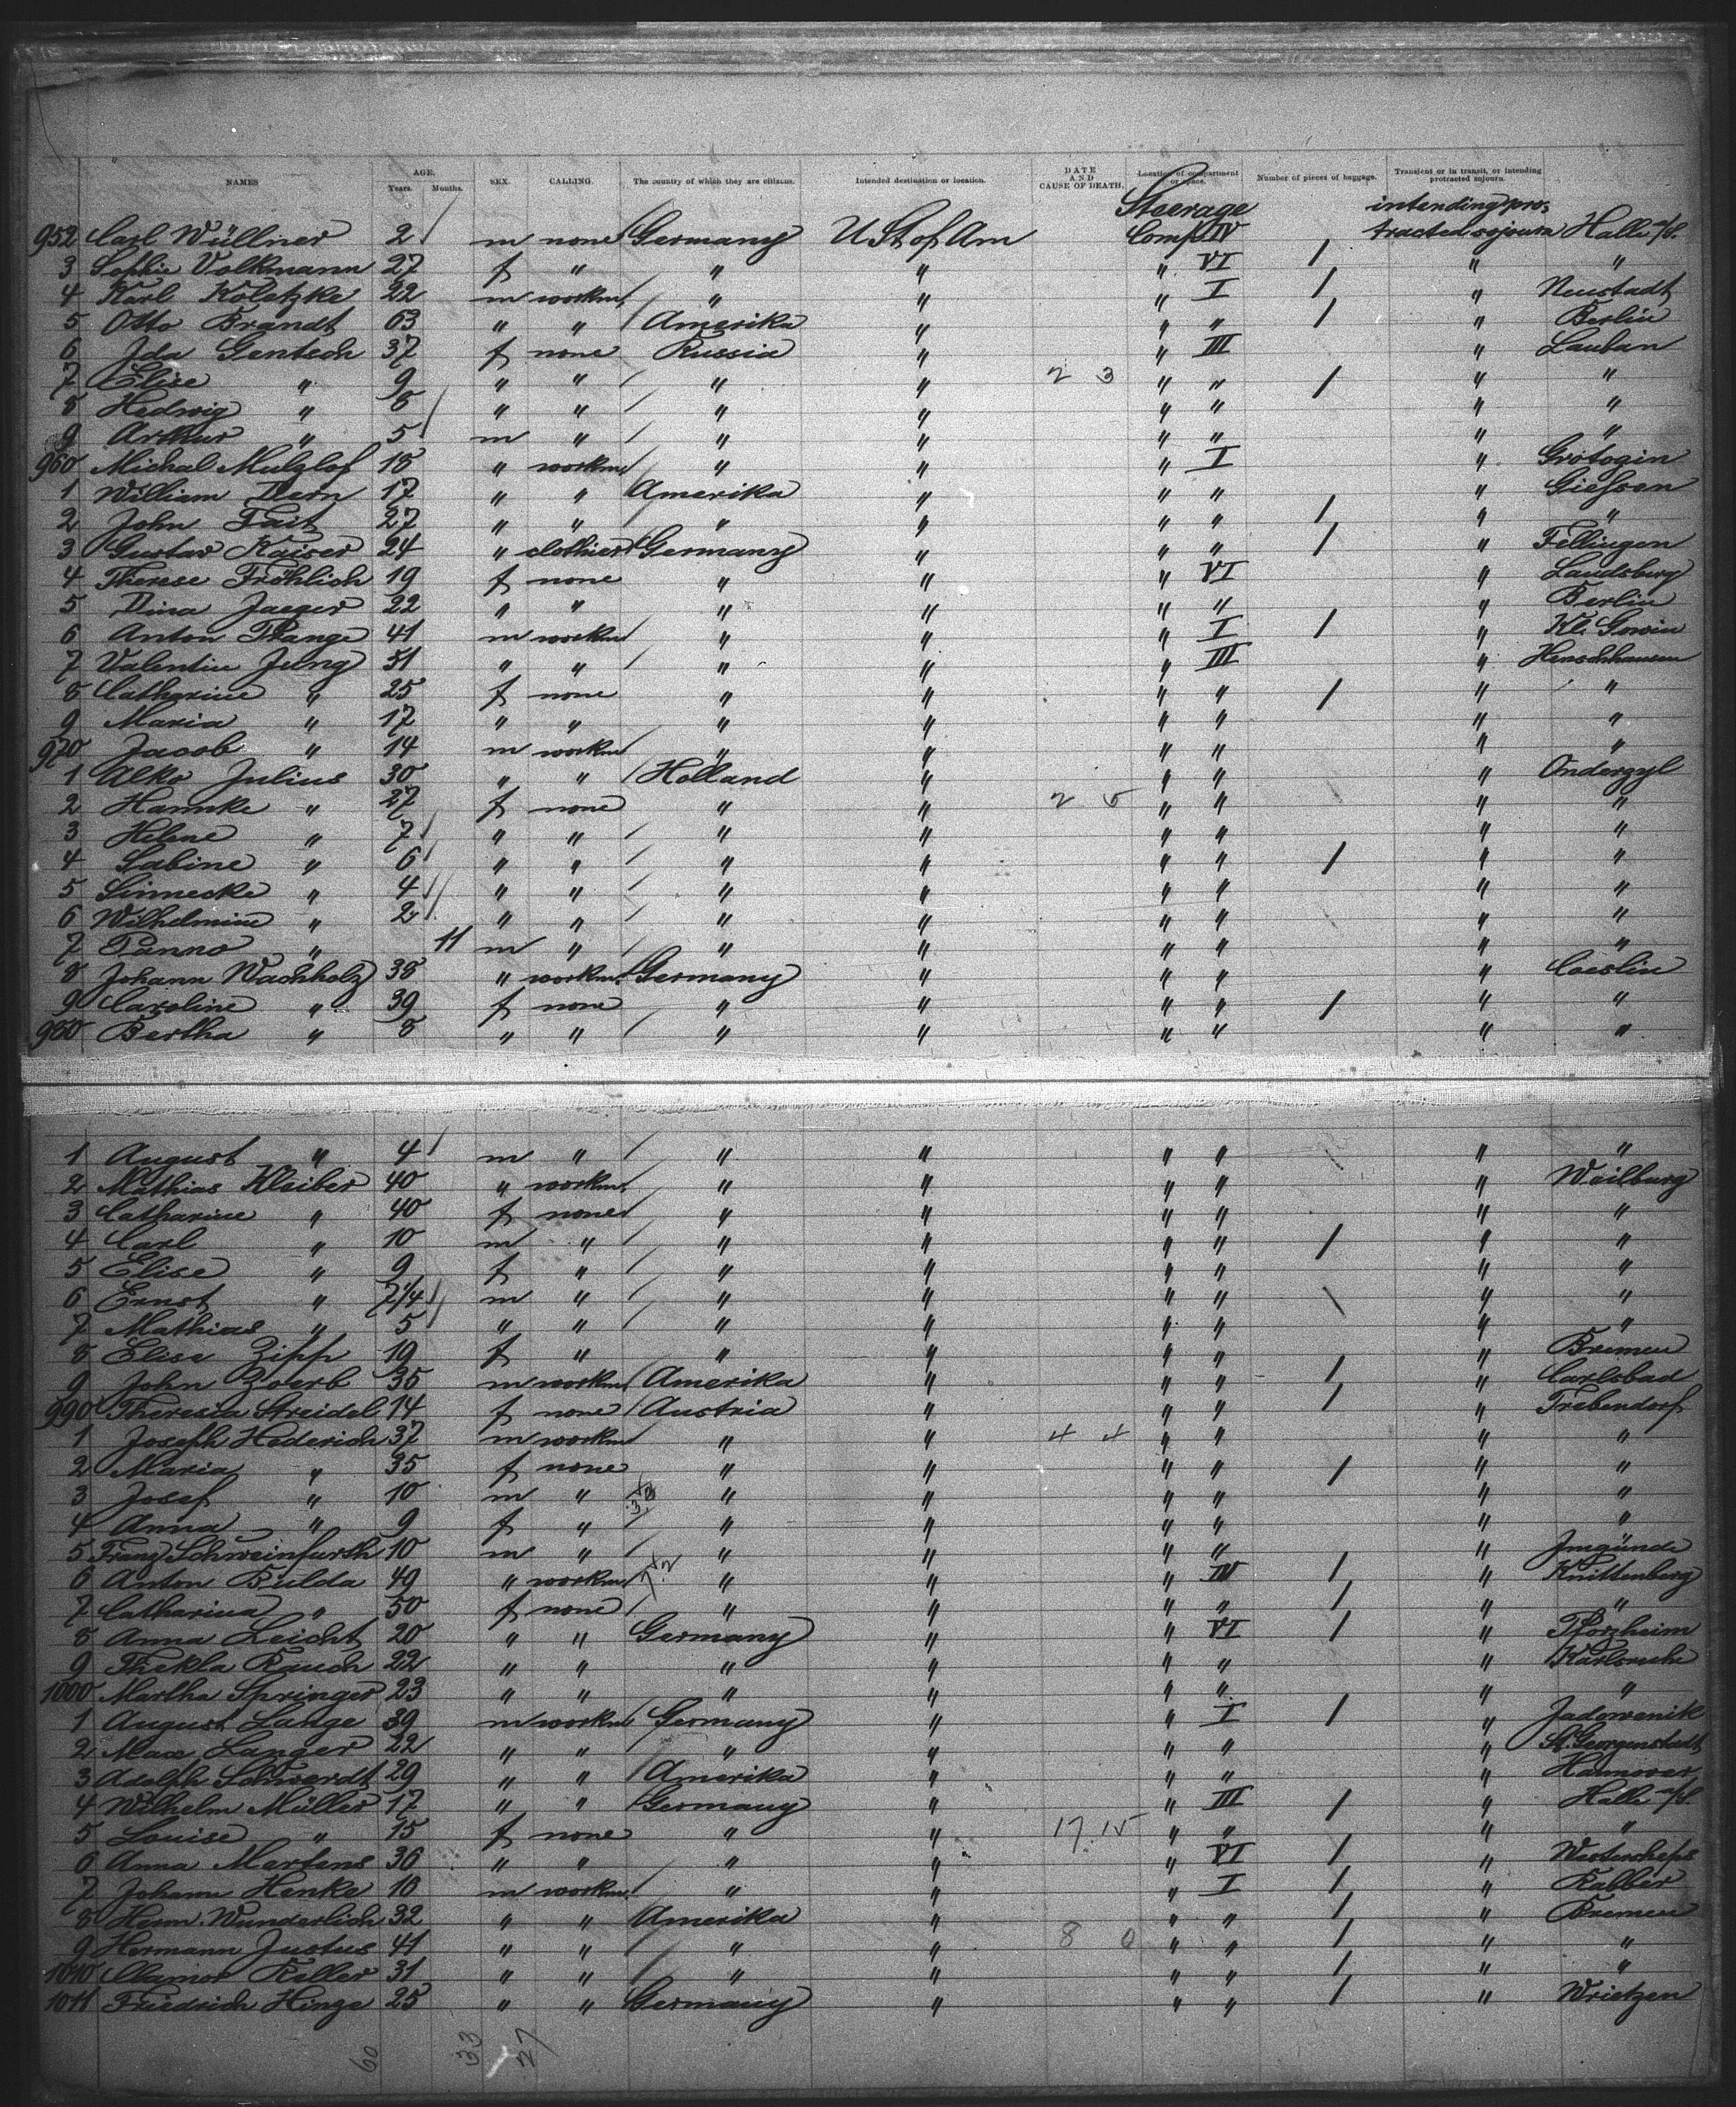 NAMES AGE. Years. Months. SEX. CALLING. The country of which they are citizens. Intended destination or location. DATE AND CAUSE OF DEATH. Location of compartment or space. Number of pieces of baggage. Transient or in transit, or intending protracted sojourn.
Steerage intending pro-
952 Carl Wüllner 2 m none Germany U St of Am Comp IV tracted sojourn Halle a/S.
3 Sophie Volkmann 27 f " " " " VI / " "
4 Karl Koletzke 22 m workm " " " I / " Neustadt
5 Otto Brandt 63 " " Amerika " " " / " Berlin
6 Ida Gentsch 37 f none Russia " " III " Lauban
7 Elise " 9 " " " " 2 3 " " / " "
8 Hedwig " 8 " " " " " " " "
9 Arthur " 5 m " " " " " " "
960 Michal Mulzlof 18 " workm " " " I "
1 William Dern 17 " " Amerika " " " " Giessen
2 John Tait 27 " " " " " " / " "
3 Gustav Kaiser 24 " clothier Germany " " " / " Fellingen
4 Therese Fröhlich 19 f none " " " VI " Landsberg
5 Dina Jaeger 22 " " " " " " " Berlin
6 Anton Prange 41 m workm " " " I / " Kl. Gowin
7 Valentin Jung 51 " " " " " III " Henschhausen
8 Catharine " 25 f none " " " " / " "
9 Maria " 17 " " " " " " " "
970 Jacob " 14 m workm " " " " " "
1 Alko Julius 30 " " Holland " " " " Onderzyl
2 Hamke " 27 f none " " 2 5 " " " "
3 Helene " 7 " " " " " " " "
4 Sabine " 6 " " " " " " / " "
5 Sinnecke " 4 " " " " " " " "
6 Wilhelmine " 2 " " " " " " " "
7 Panno " 11 m " " " " " " "
8 Johann Wachholz 38 " workm. Germany " " " " Coeslin
9 Caroline " 39 f none " " " " / " "
980 Bertha " 8 " " " " " " " "
1 August " 4 m " " " " " " "
2 Mathias Kleiber 40 " workm. " " " " " Weilburg
3 Catharine " 40 f none " " " " " "
4 Carl " 10 m " " " " " / " "
5 Elise " 9 f " " " " " " "
6 Ernst " 7 1/4 m " " " " " " "
7 Mathias " 5 " " " " " " " "
8 Elise Zipp 19 f " " " " " " Bremen
9 John Zoerb 35 m workm Amerika " " " / " Carlsbad
990 Theresia Streidel 14 f none Austria " " " / " Trebendorf
1 Joseph Hederich 37 m workm " " 4 4 " " " "
2 Maria " 35 f none " " " " / " "
3 Josef " 10 m " " " " " " "
4 Anna " 9 f " " " " " " "
5 Franz Schweinfurth 10 m " " " " " " Jmgünde
6 Anton Bulda 49 " workm " " " IV / " Knittenberg
7 Catharina " 50 f none " " " " / " "
8 Anna Leicht 20 " " Germany " " VI / " Pforzheim
9 Thekla Rauch 22 " " " " " " " Karlsruhe
1000 Martha Springer 23 " " " " " " " "
1 August Lange 39 m workm Germany " " I / " Jadowenik
2 Max Langer 22 " " " " " " " St. Georgenstadt
3 Adolph Schwerdt 29 " " Amerika " " " " Hannover
4 Wilhelm Müller 17 " " Germany " " III / " Halle a/S.
5 Louise " 15 f none " " 17 15 " " " "
6 Anna Martens 36 " " " " " VI / "
7 Johann Henke 16 m workm. " " " I / "
8 Herm. Wunderlich 32 " " Amerika " " " / " Bremen
9 Hermann Justus 41 " " " " 8 0 " " / " "
1010 Clamor Keller 31 " " " " " " / " "
1011 Friedrich Hinze 25 " " Germany " " " / " Wrietzen
60 33 27